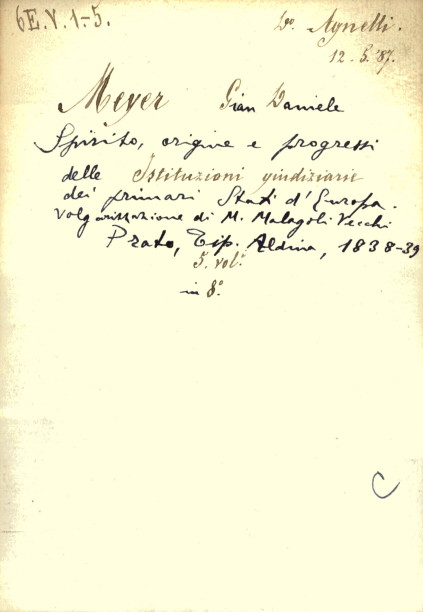 6E.V.1-5.
Do. Agnelli.
12.5.'87.
Meyer Gian Daniele
Spirito, origine e progressi
delle Istituzioni giudiziarie
dei primari Stati d'Europa.
Volgarizzazione di M. Malagoli Vecchi
Prato, Tip. Aldina, 1838-39
5. vol.i
in 8.o
C